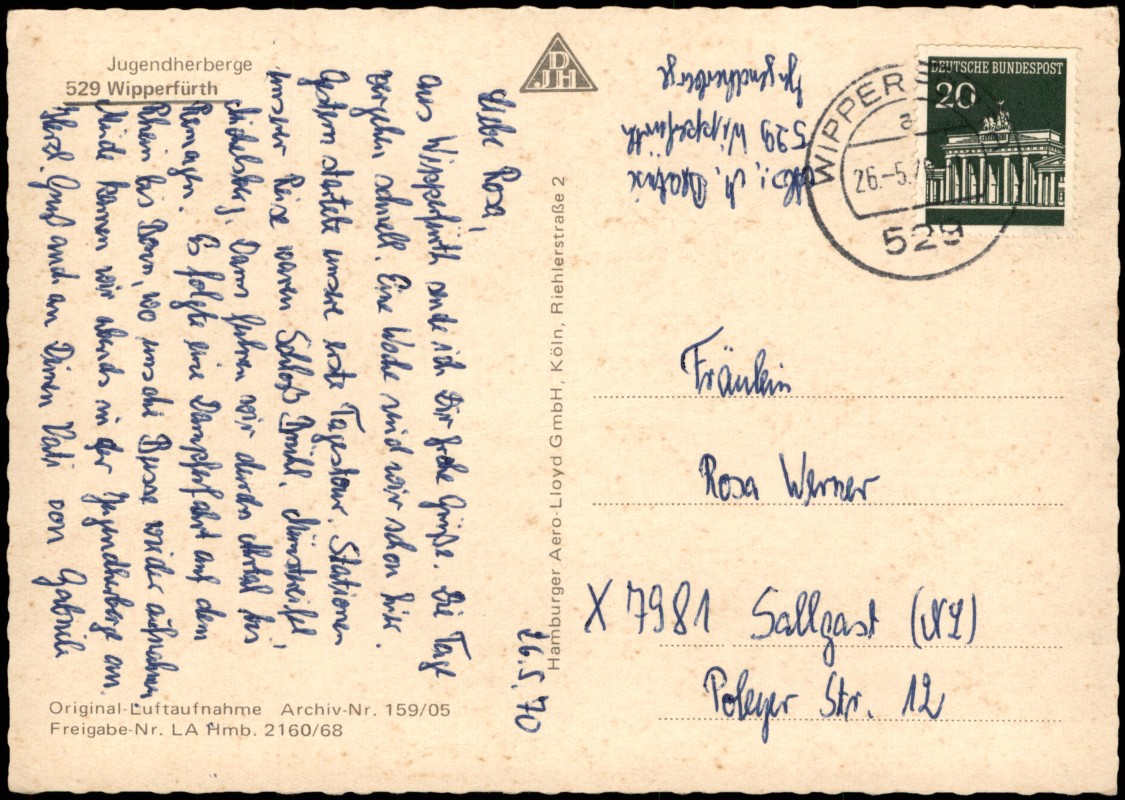 Jugendherberge
529 Wipperfürth
DJH
26.5.70
Liebe Rosa,
aus Wipperfürth sende ich Dir frohe Grüße. Die Tage
vergehen schnell. Eine Woche sind wir schon hier.
Gestern startete unsere erste Tagestour. Stationen
unserer Reise waren Schloß Brühl, Münstereifel,
Dann fuhren wir durchs Ahrtal bis
Remagen. Es folgte eine Dampferfahrt auf dem
Rhein bis Bonn, wo uns die Busse wieder aufnahmen.
Müde kamen wir abends in der Jugendherberge an.
Herzl. Gruß auch an Deinen Vati von Gabriele
Original-Luftaufnahme Archiv-Nr. 159/05
Freigabe-Nr. LA Hmb. 2160/68
Hamburger Aero-Lloyd GmbH, Köln, Riehlerstraße 2
Abs.: M.
529 Wipperfürth
Jugendherberge
DEUTSCHE BUNDESPOST
20
WIPPERF
a
26.-5.7
529
Fräulein
Rosa Werner
X 7981 Sallgast (NL)
Poleyer Str. 12